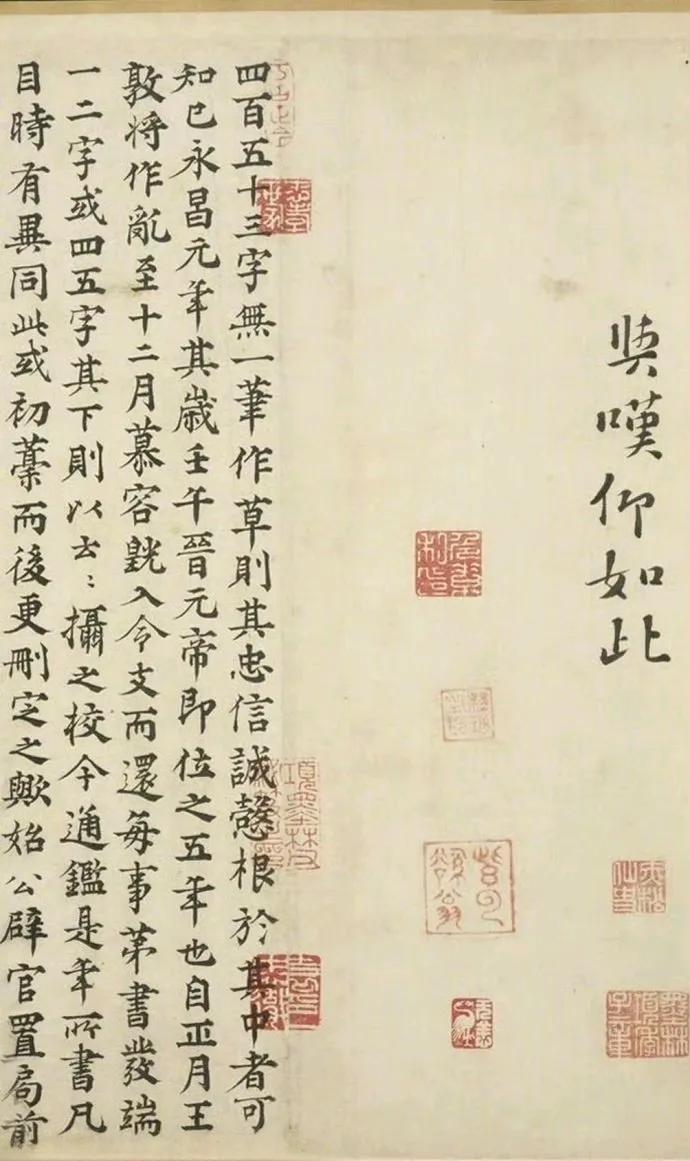 嘆仰如此
墨林項季子章
四百五十三字無一筆作草則其忠信誠慤根於其中者可
知已永昌元年其歲壬午晉元帝即位之五年也自正月王
敦將作亂至十二月慕容皝入令支而還每事第書發端
一二字或四五字其下則以云〻攝之校今通鑑是年所書凡
目時有異同此或初藁而後更刪定之歟始公辟官置局前